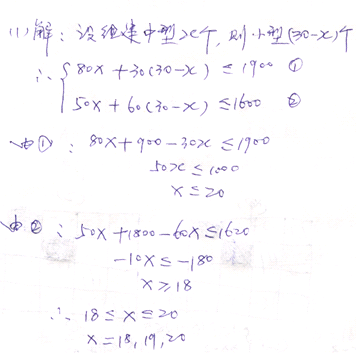 (1)解：设组建中型x个,则小型(30-x)个
∴{80x+30(30-x)≤1900 ①
50x+60(30-x)≤1600 ②
由①：80x+900-30x≤1900
50x≤1000
x≤20
由②：50x+1800-60x≤1620
-10x≤-180
x≥18
∴ 18≤x≤20
x=18,19,20